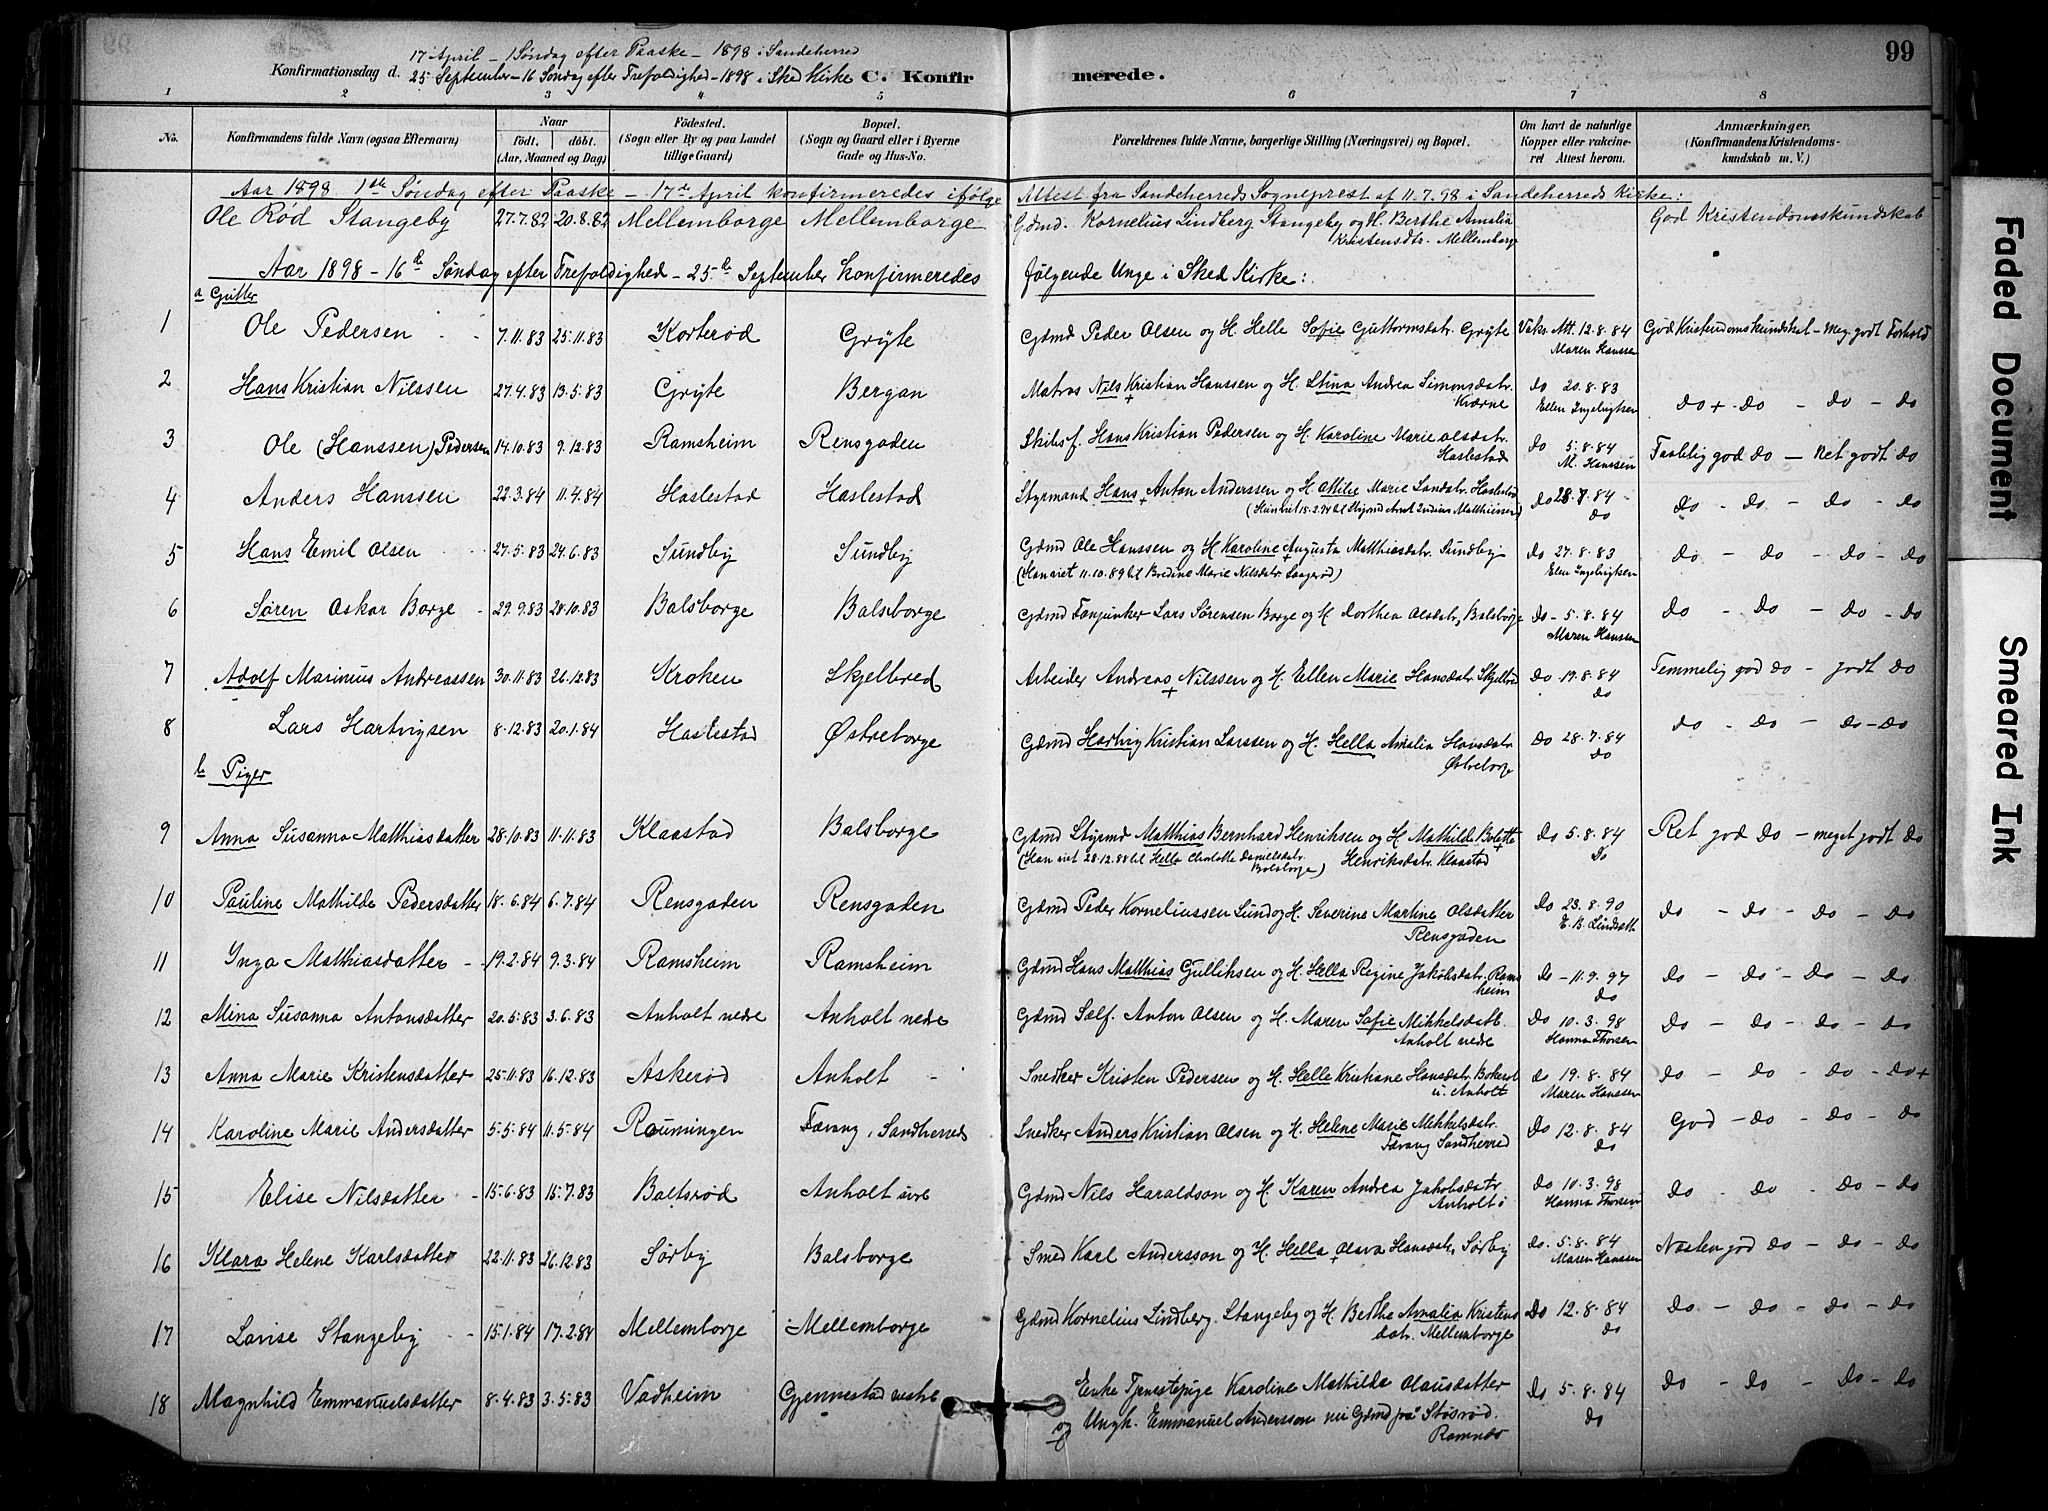 99
17 April – 1 Søndag efter Paaske – 1898 i Sandeherred
Konfirmationsdag d. 25 September – 16 Søndag efter Trefoldighed – 1898 i Sked Kirke C. Konfirmerede.
1 2 3 4 5 6 7 8
No. Konfirmandens fulde Navn (ogsaa Efternavn) Naar født. døbt. (Aar, Maaned og Dag) Fødested. (Sogn eller By og paa Landet tillige Gaard) Bopæl. (Sogn og Gaard eller i Byerne Gade og Hus-No. Forældrenes fulde Navne, borgerlige Stilling (Næringsvei) og Bopæl. Om havt de naturlige Kopper eller vakcineret Attest herom. Anmærkninger. (Konfirmandens Kristendomskundskab m. V.)
Aar 1898 1ste Søndag efter Paaske – 17de April konfirmeredes ifølge Attest fra Sandeherreds Sogneprest af 11.7.98 i Sandeherreds Kirke:
Ole Rød Stangeby 27.7.82 20.8.82 Mellemborge Mellemborge Gdmd. Kornelius Lindberg Stangeby og H. Berthe Amalia Kristensdtr. Mellemborge God Kristendomskundskab
Aar 1898 – 16de Søndag efter Trefoldighed – 25de September konfirmeredes følgende Unge i Sked Kirke:
a Gutter
1 Ole Pedersen 7.11.83 25.11.83 Korterød Gryte Gdmd Peder Olsen og H. Helle Sofie Guttormsdatr. Gryte Vakc. Att. 12.8.84 Maren Hanssen God Kristendomskundskab – Meg. godt Forhold
2 Hans Kristian Nilssen 27.4.83 13.5.83 Gryte Bergan Matros Nils Kristian Hanssen og H. Stina Andrea Simonsdatr. Kværne do 20.8.83 Ellen Ingebrigtsen do + do – do – do
3 Ole (Hanssen) Pedersen 14.10.83 9.12.83 Ramsheim Rensgaden Skibsf. Hans Kristian Pedersen og H. Karoline Marie Olsdatr. Haslestad do 5.8.84 M. Hanssen Taalelig god do – Ret godt do
4 Anders Hanssen 22.3.84 11.4.84 Haslestad Haslestad Styrmand Hans Anton Anderssen og H. Marie Haslestad do 28.7.84 do do – do – do – do
5 Hans Emil Olsen 27.5.83 24.6.83 Sundby Sundby Gdmd Ole Hanssen og H Karoline Augusta Matthiasdatr. Sundby (Han viet 11.10.89 til Bredine Marie Nilsdatr. Saagerød) do 27.8.83 Ellen Ingebrigtsen do – do – do – do
6 Søren Oskar Borge 29.9.83 28.10.83 Balsborge Balsborge Gdmd Fanjunker Lars Sørensen Borge og H. Dorthea Olsdatr, Balsborge do – 5.8.84 Maren Hanssen do – do – do – do
7 Adolf Marinius Andreassen 30.11.83 26.12.83 Kroken Skjelbred Arbeider Andreas Nilssen og H. Ellen Marie Hansdatr. Skjelbred do 19.8.84 do Temmelig god do – godt do
8 Lars Hartvigsen 8.12.83 20.1.84 Haslestad Østreborge Gdmd Hartvig Kristian Larssen og H. Hella Amalia Hansdatr Østreborge do 28.7.84 do do – do – do – do
b Piger
9 Anna Susanna Matthiasdatter 28.10.83 11.11.83 Klaastad Balsborge Gdmd Styrmd Matthias Bernhard Henriksen og H. Mathilde Bolette (Han viet 28.12.88 til Hella Charlotte Danielsdatr. Balsborge) Henriksdatr. Klaastad do 5.8.84 do Ret god do – meget godt do
10 Pauline Mathilde Pedersdatter 18.6.84 6.7.84 Rensgaden Rensgaden Gdmd Peder Korneliussen Lund og H. Severine Martine Olsdatter Rensgaden do 23.8.90 E. B. do – do – do – do
11 Inga Matthiasdatter 19.2.84 9.3.84 Ramsheim Ramsheim Gdmd Hans Matthias Gulliksen og H. Hella Regine Jakobsdatr. Ramsheim do – 11.9.97 do do – do – do – do
12 Mina Susanna Antonsdatter 20.5.83 3.6.83 Anholt nedre Anholt nedre Gdmd Sælf. Anton Olsen og H. Maren Sofie Mikkelsdatt. Anholt nedre do 10.3.98 Hanna Thorsen do – do – do – do
13 Anna Marie Kristensdatter 25.11.83 16.12.83 Askerød Anholt Snedker Kristen Pedersen og H. Helle Kristiane Hansdatr. u. Anholt do 19.8.84 Maren Hanssen do – do – do – do +
14 Karoline Marie Andersdatter 5.5.84 11.5.84 Raumingen Færang, Sandherred Snedker Anders Kristian Olsen og H. Helene Marie Mikkelsdatr. Færang Sandherred do 12.8.84 do God – do – do – do
15 Elise Nilsdatter 15.6.83 15.7.83 Baltsrød Anholt øvre Gdmd Nils Haraldson og H. Karen Andrea Jakobsdatr Anholt ø do 10.3.98 Hanna Thorsen do – do – do – do
16 Klara Helene Karlsdatter 22.11.83 26.12.83 Sørby Balsborge Smed Karl Andersson og H. Hella Olava Hansdatr, Sørby do. 5.8.84 Maren Hanssen Næsten god do – do – do
17 Lovise Stangeby 15.1.84 17.2.84 Mellemborge Mellemborge Gdmd Kornelius Lindberg Stangeby og H. Berthe Amalia Kristensdatr. Mellemborge do 12.8.84 do do – do – do – do
18 Magnhild Emmanuelsdatter 8.4.83 3.5.83 Vadheim Gjennestad vestre Enke Tjenestepige Karoline Mathilde Olausdatter og Ungk. Emmanuel Anderssøn nu Gdmd på Støsrød. Ramnæs do 5.8.84 do do – do – do – do
Faded Document
Smeared Ink